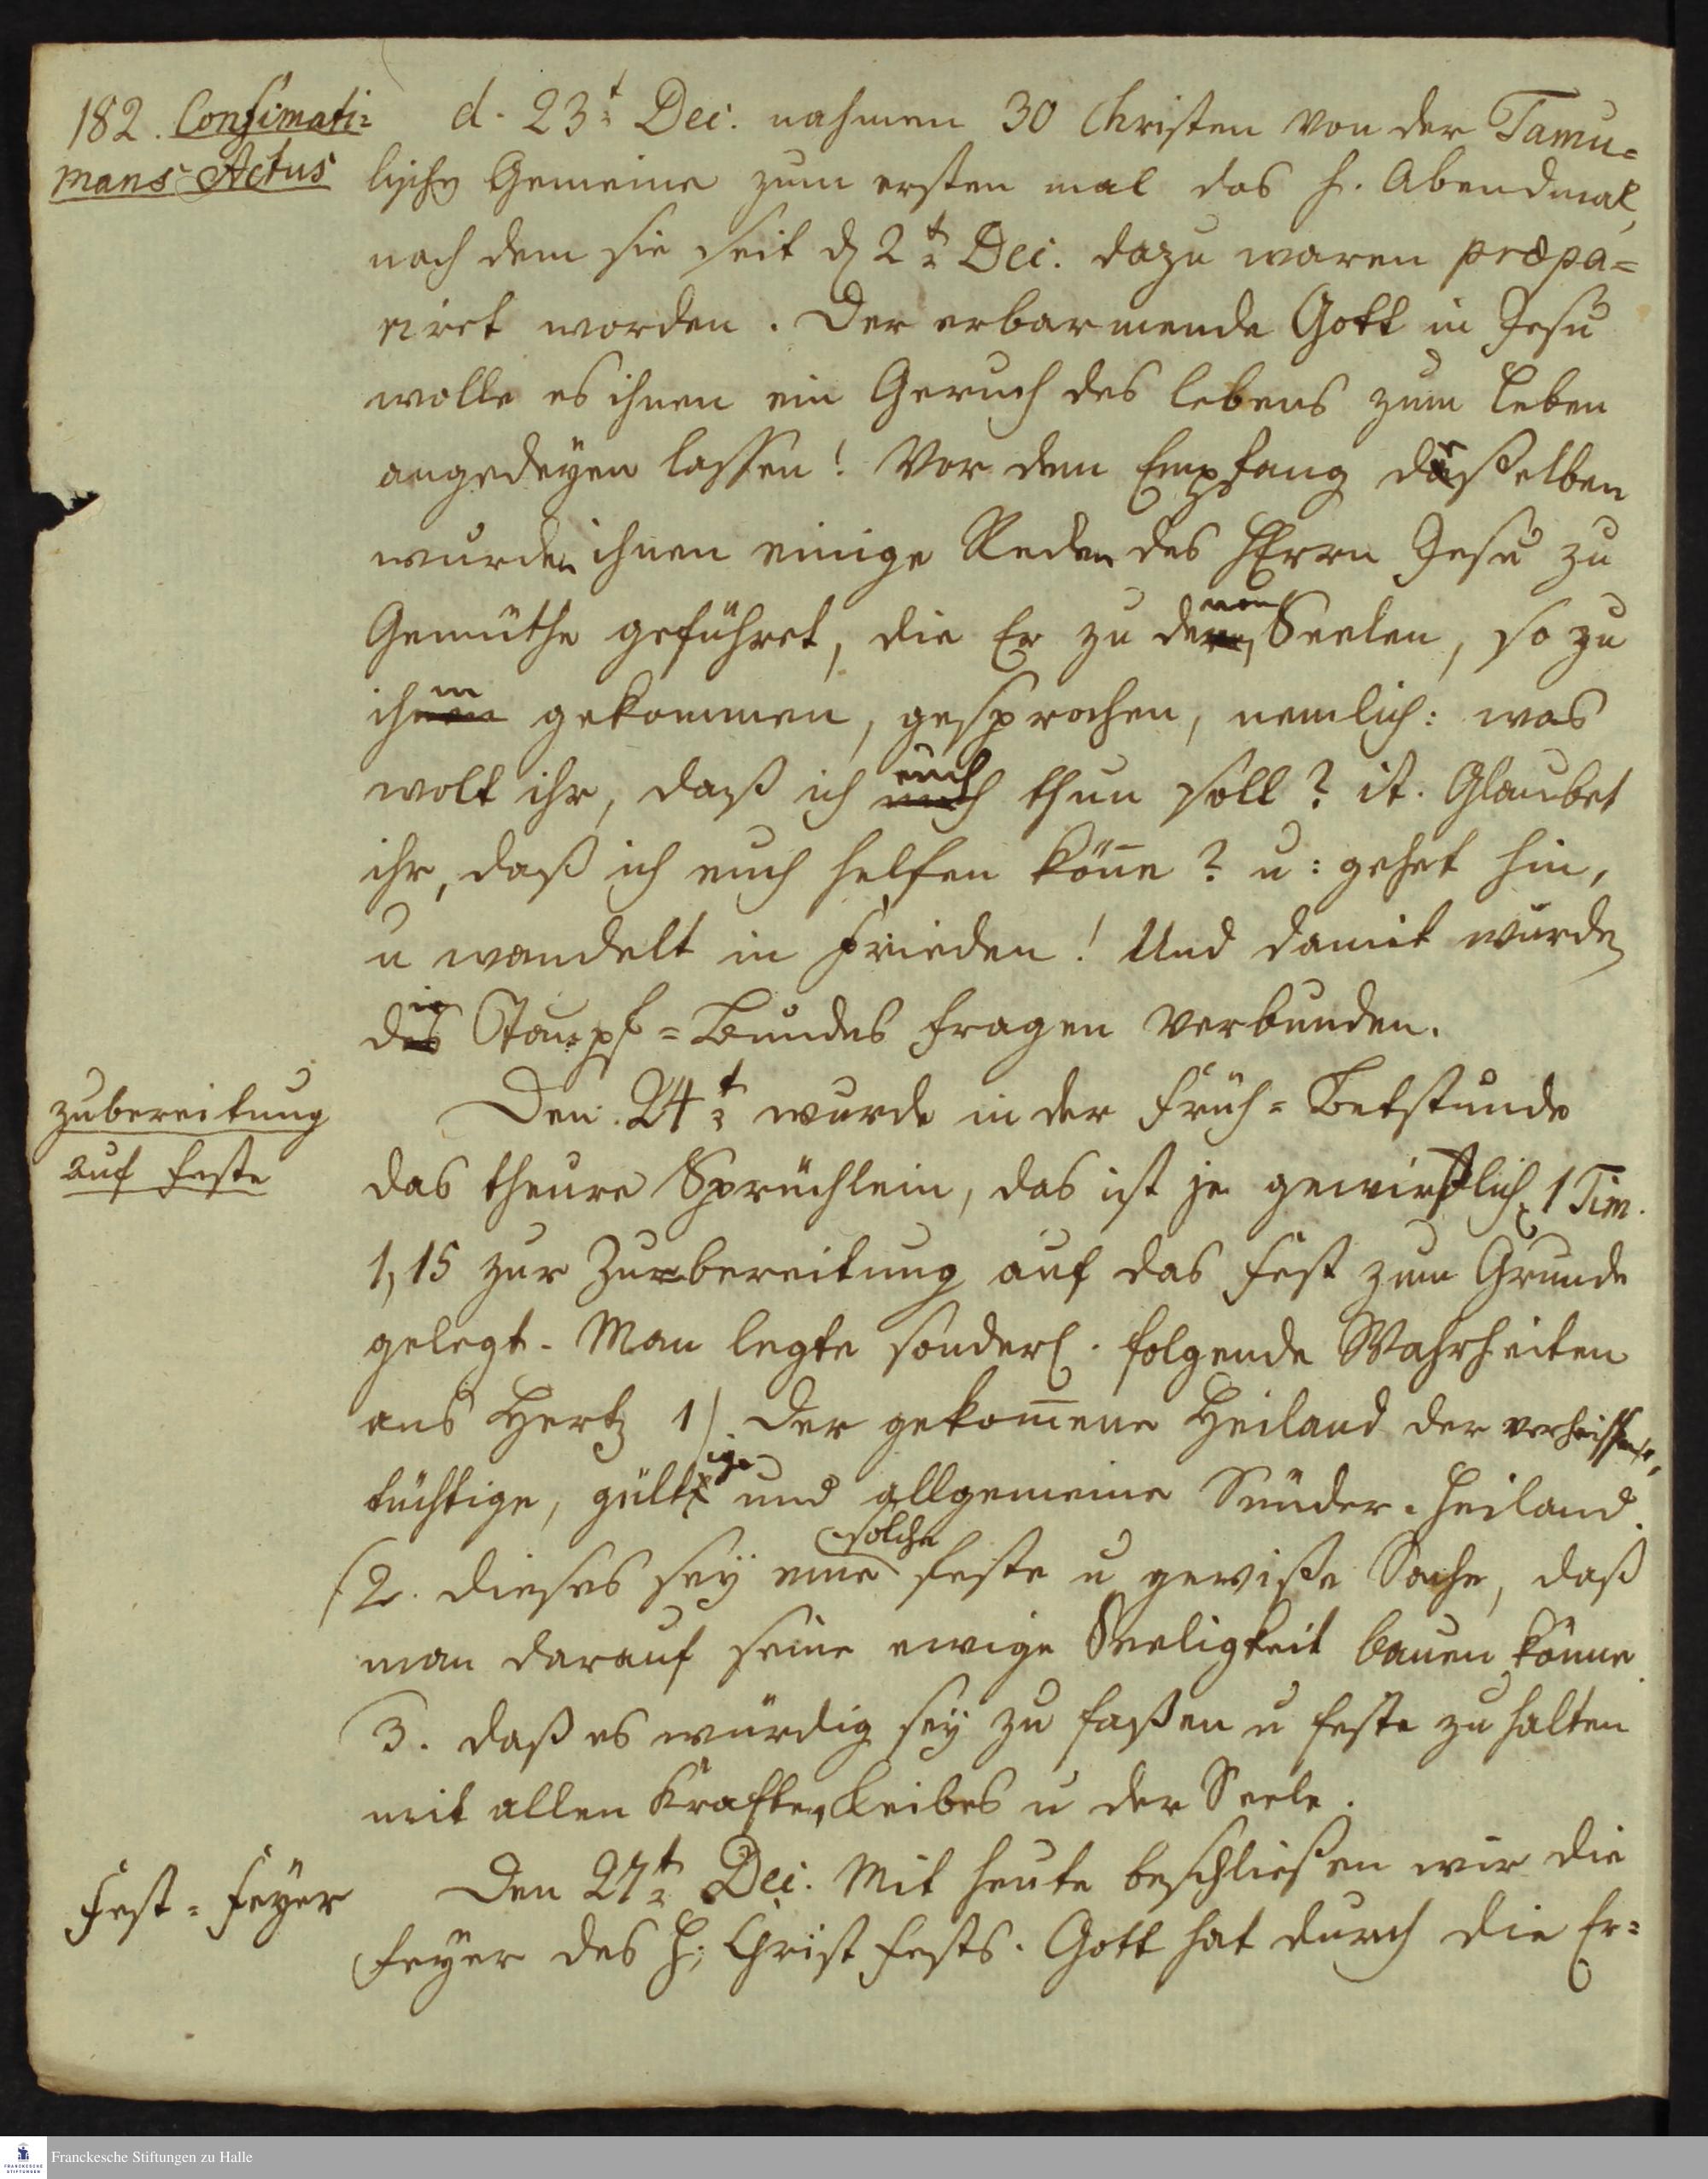 182. Confimati=
mans-Actus
d. 23t Dec. nahmen 30 Christen von der Tamu=
lischen Gemeine zum ersten mal das h. Abendmal,
nach dem sie seit den 2t Dec. dazu waren præpa=
riret worden. Der erbarmende Gott in Jesu
wolle es ihnen ein Geruch des Lebens zum Leben
angedeyen lassen! Vor dem Empfang deßelben
wurden ihnen einige Reden des HErrn Jesu zu
Gemüthe geführet, die Er zu denen Seelen, so zu
ihm gekommen, gesprochen, nemlich: was
wolt ihr, daß ich euch thun soll? it. Glaubet
ihr, daß ich euch helfen kön̄e? u: gehet hin,
u wandelt in Frieden! Und damit wurden
die Taupf=Bundes Fragen verbunden.
Zubereitung
auf Feste
Den. 24t wurde in der Früh=Betstunde
das theure Sprüchlein, das ist je gewißlich 1 Tim.
1, 15 zur Zubereitung auf das Fest zum Grunde
gelegt. Man legte sonderl. folgende Wahrheiten
ans Hertz 1) Der gekom̄ene Heiland der verheissene,
tüchtige, gültige und allgemeine Sünder-Heiland.
(2. dieses sey eine solche feste u gewiße Sache, daß
man darauf seine ewige Seeligkeit bauen könne.
3. daß es würdig sey zu faßen u feste zu halten
mit allen Kräften Leibes u der Seele.
Fest=Feyer
Den 27t Dec. Mit heute beschließen wir die
Feyer des H. Christ Fests. Gott hat durch die Er=
Franckesche Stiftungen zu Halle